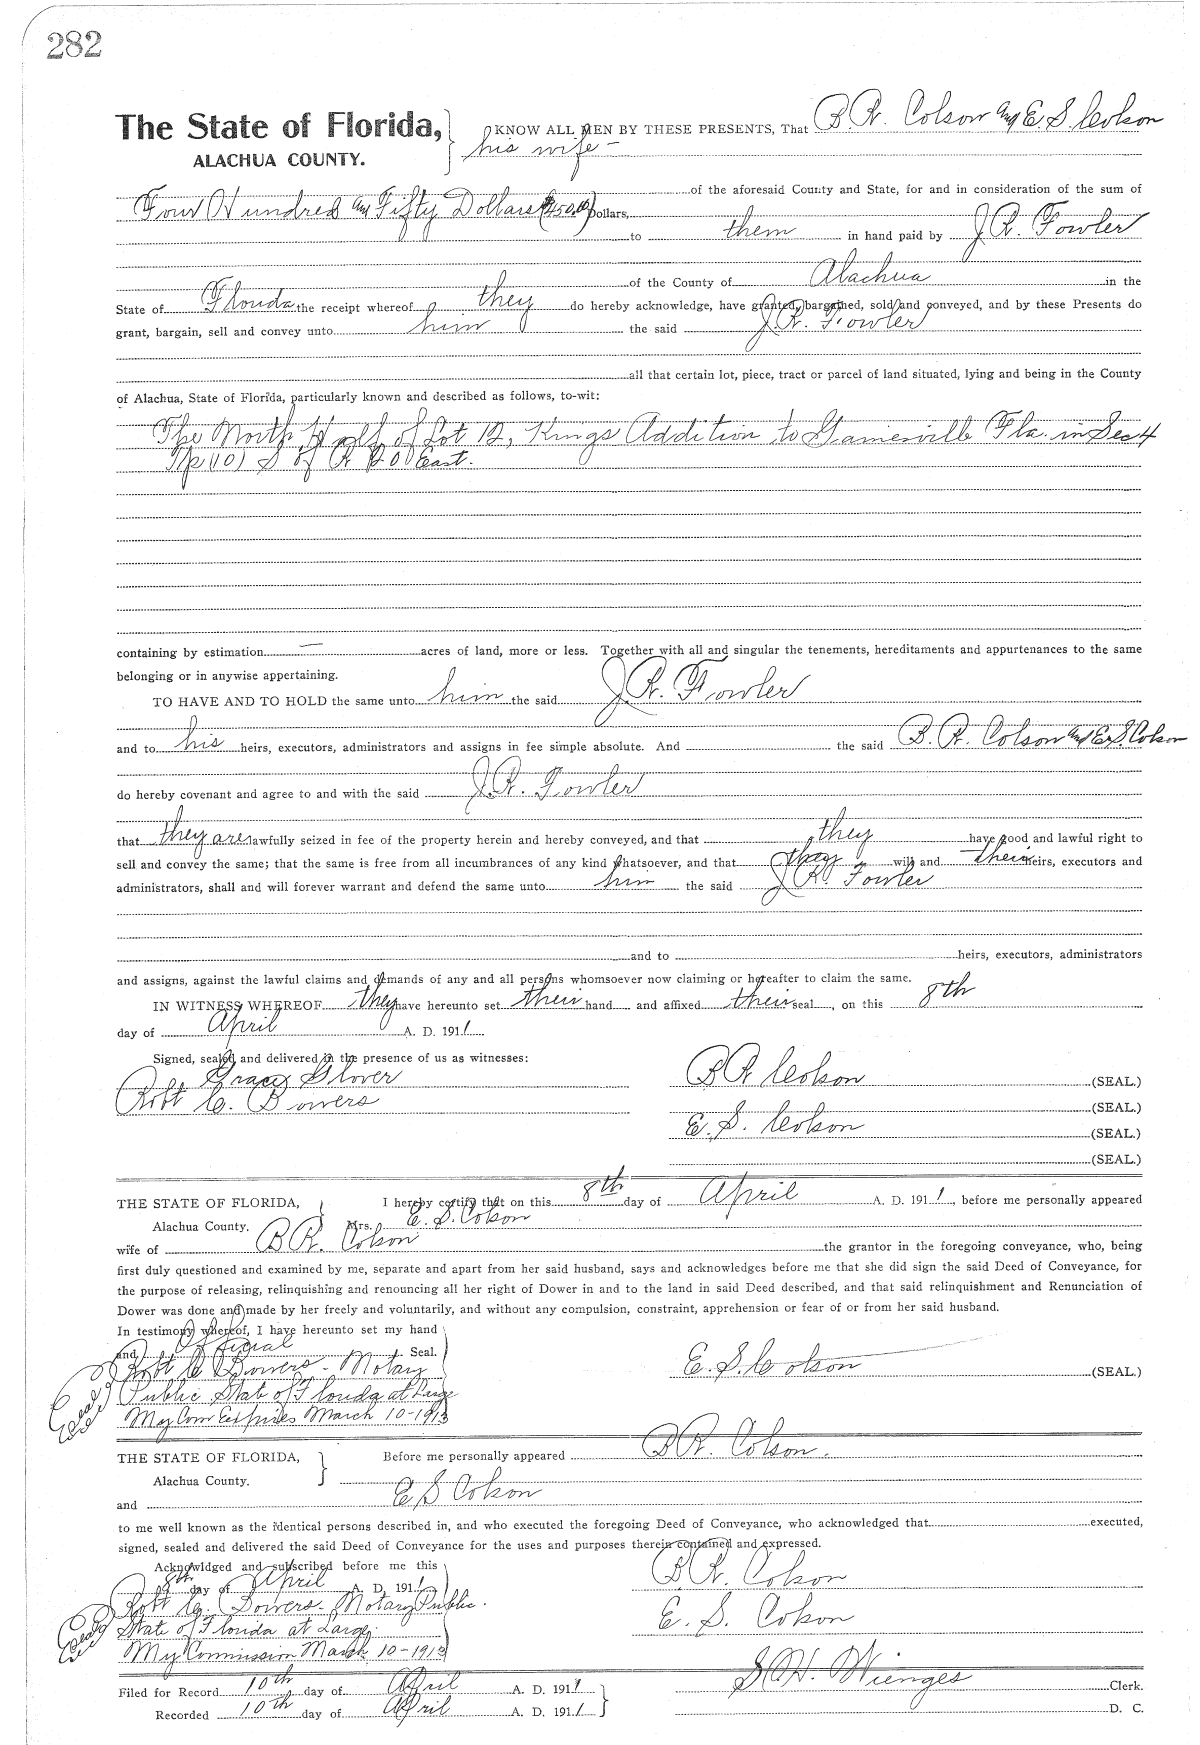 282
The State of Florida, KNOW ALL MEN BY THESE PRESENTS, That B. R. Colson and E. S. Colson
ALACHUA COUNTY. his wife -
of the aforesaid County and State, for and in consideration of the sum of
Four Hundred and Fifty Dollars ($450.00) Dollars,
to them in hand paid by J. R. Fowler
of the County of Alachua in the
State of Florida the receipt whereof they do hereby acknowledge, have granted, bargained, sold and conveyed, and by these Presents do
grant, bargain, sell and convey unto him the said J. R. Fowler
all that certain lot, piece, tract or parcel of land situated, lying and being in the County
of Alachua, State of Florida, particularly known and described as follows, to-wit:
The North Half of Lot 12, Kings Addition to Gainesville Fla. in Sec 4
Tp (10) S of R 20 East.
containing by estimation — acres of land, more or less. Together with all and singular the tenements, hereditaments and appurtenances to the same
belonging or in anywise appertaining.
TO HAVE AND TO HOLD the same unto him the said J. R. Fowler
and to his heirs, executors, administrators and assigns in fee simple absolute. And the said B. R. Colson and E. S. Colson
do hereby covenant and agree to and with the said J. R. Fowler
that they are lawfully seized in fee of the property herein and hereby conveyed, and that they have good and lawful right to
sell and convey the same; that the same is free from all incumbrances of any kind whatsoever, and that they will and their heirs, executors and
administrators, shall and will forever warrant and defend the same unto him the said J. R. Fowler
and to heirs, executors, administrators
and assigns, against the lawful claims and demands of any and all persons whomsoever now claiming or hereafter to claim the same.
IN WITNESS WHEREOF they have hereunto set their hand and affixed their seal, on this 8th
day of April A. D. 1911
Signed, sealed and delivered in the presence of us as witnesses:
Gracy Glover B R Colson (SEAL.)
Robt C. Bowers (SEAL.)
E. S. Colson (SEAL.)
(SEAL.)
THE STATE OF FLORIDA, I hereby certify that on this 8th day of April A. D. 1911, before me personally appeared
Alachua County. Mrs. E. S. Colson
wife of B R. Colson the grantor in the foregoing conveyance, who, being
first duly questioned and examined by me, separate and apart from her said husband, says and acknowledges before me that she did sign the said Deed of Conveyance, for
the purpose of releasing, relinquishing and renouncing all her right of Dower in and to the land in said Deed described, and that said relinquishment and Renunciation of
Dower was done and made by her freely and voluntarily, and without any compulsion, constraint, apprehension or fear of or from her said husband.
In testimony whereof, I have hereunto set my hand
and Official Seal.
Robt C Bowers - Notary E. S. Colson (SEAL.)
Public State of Florida at Large
My Com Expires March 10-1913
THE STATE OF FLORIDA, Before me personally appeared B R. Colson.
Alachua County.
and E S Colson
to me well known as the identical persons described in, and who executed the foregoing Deed of Conveyance, who acknowledged that executed,
signed, sealed and delivered the said Deed of Conveyance for the uses and purposes therein contained and expressed.
Acknowldged and subscribed before me this B R. Colson
8th day of April A. D. 1911
Robt C. Bowers - Notary Public. E. S. Colson
State of Florida at Large.
My Commission March 10-1913
S. H. Wienges Clerk.
Filed for Record 10th day of April A. D. 1911
Recorded 10th day of April A. D. 1911 D. C.